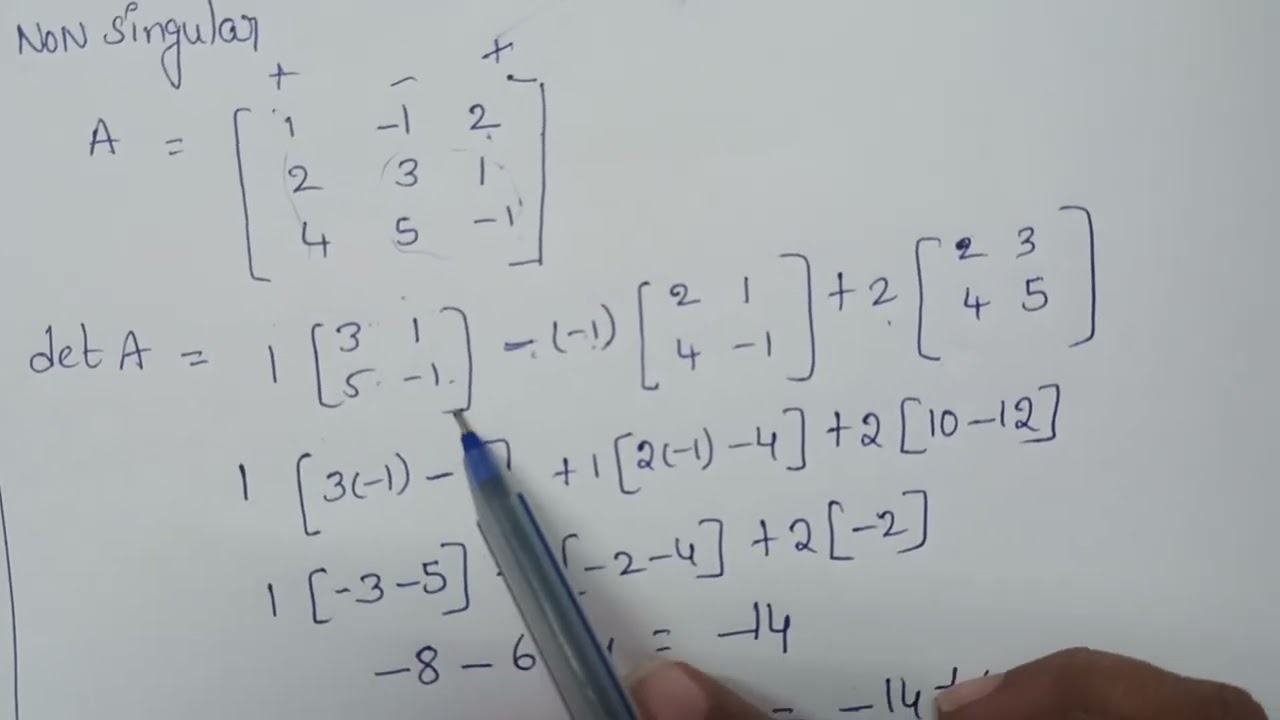 NON Singular
+ − +
A = [ 1 -1 2
2 3 1
4 5 -1 ]
det A = 1 [ 3 1 / 5 -1 ] - (-1) [ 2 1 / 4 -1 ] + 2 [ 2 3 / 4 5 ]
1 [3(-1) - ] +1 [2(-1) -4] +2 [10-12]
1 [-3-5] [-2-4] +2 [-2]
-8 - 6 = -14
= -14